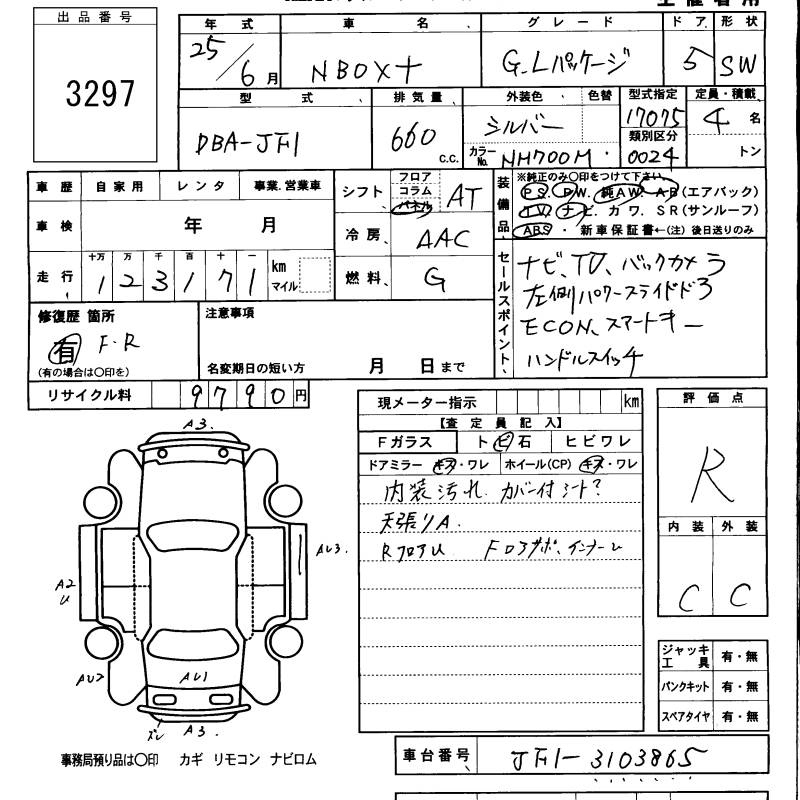 出品番号
3297
年式 車名 グレード ドア 形状
25/6月 NBOX+ G.Lパッケージ 5 SW
型式 排気量 外装色 色替 型式指定 定員・積載
DBA-JF1 660 c.c. シルバー 17075 4 名
カラーNo. NH700M 類別区分 0024 トン
車歴 自家用 レンタ 事業.営業車
車検 年 月
走行 十万 万 千 百 十 一
1 2 3 1 7 1 km マイル
シフト フロア コラム パネル AT
冷房 AAC
燃料 G
装備品
※純正のみ○印をつけて下さい
PS. PW. 純AW. AB(エアバック)
TV. ナビ. カワ. SR(サンルーフ)
ABS・新車保証書←(注)後日送りのみ
セールスポイント
ナビ、TV、バックカメラ
左側パワースライドドア
ECON、スマートキー
ハンドルスイッチ
修復歴 箇所
有 F.R
(有の場合は○印を)
注意事項
名変期日の短い方 月 日まで
リサイクル料 9790円
現メーター指示 km
【査定員記入】
Fガラス トビ石 ヒビワレ
ドアミラー キズ・ワレ ホイール(CP) キズ・ワレ
内装汚れ. カバー付シート?
天張りA.
RフロアU
評価点
R
内装 外装
C C
ジャッキ工具 有・無
パンクキット 有・無
スペアタイヤ 有・無
A3.
AU3.
A2
U
AU2
AU1
ズレ A3.
事務局預り品は○印 カギ リモコン ナビロム
車台番号 JF1-3103865